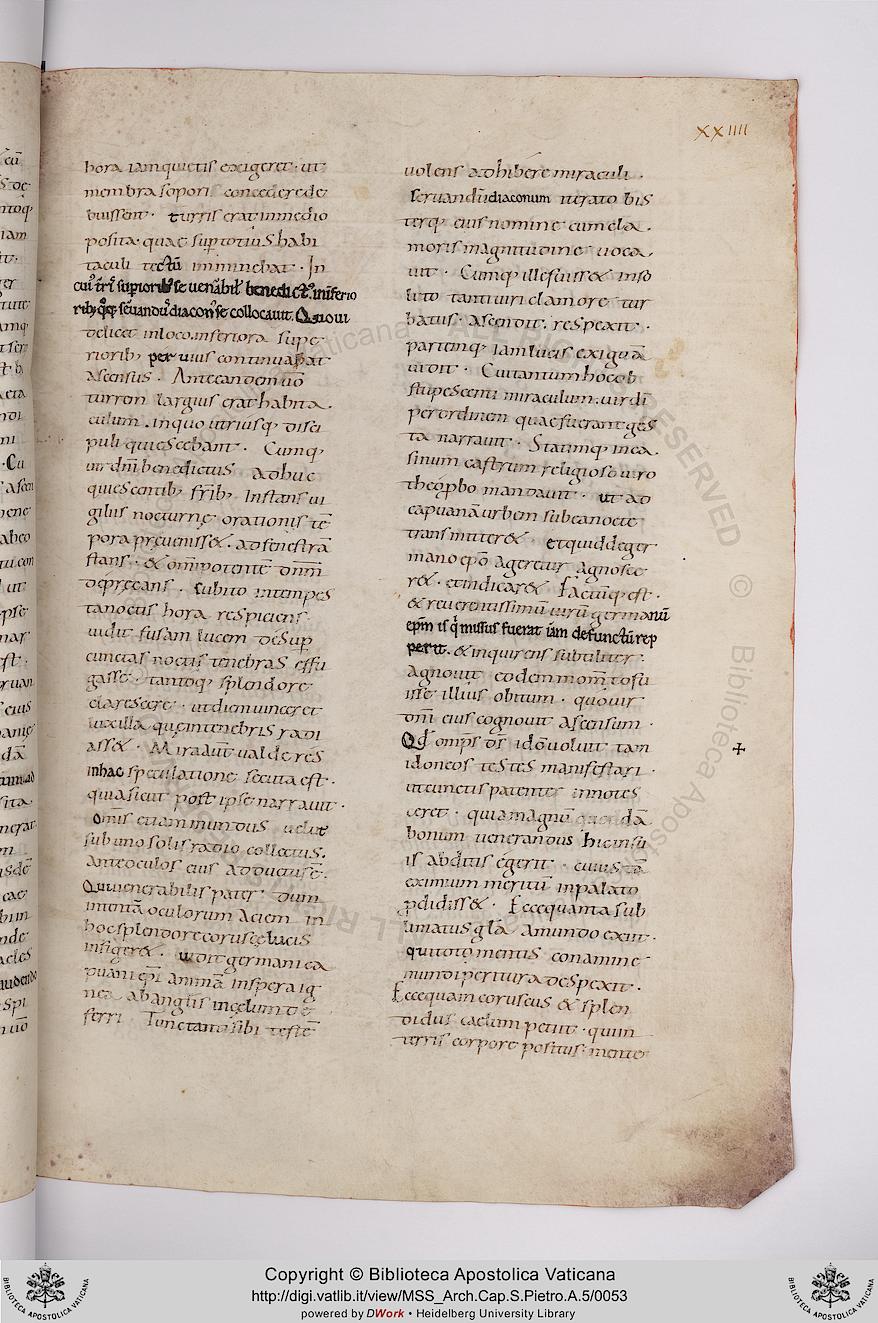 XXIIII
hora iam quietis exigeret · ut
membra sopori concederede
buissent · turris erat inmedio
posita · quae sup totius habi
taculi tectū imminebat · In
cui᾽ trī superiorib᾽ se uenābil᾽ benedict᾽. in inferio
rib᾽ q̄q̄ seruandu᾽ diacon᾽ se collocauit. Quo ui
delicet inloco. inferiora supe
riorib᾽ peruius continuabat
ascensus · Ante eandem uō
turrem largius erat habita ·
culum · inquo utriusq᾽ disci
puli quiescebant · Cumq᾽
uir dn̄i benedictus adhuc
quiescentib᾽ fr̄ib᾽ Instans ui
gilus nocturnę orationis tē
pora pręuenisset · ad fenestrā
stans · & omnipotentē dn̄m
depręcans · subito intempes
ta noctis hora respiciens
uidit fusam lucem desup
cunctas noctis tenebras effu
gasse · tantoq᾽ splendore
clarescere · ut diem uinceret
lux illa quę intenebris radi
asset · Mira aut̄ ualde res
inhac speculatione secuta est ·
quia sicut post ipse narrauit ·
omnis etiam mundus uelut
sub uno solis radio collectus ·
ante oculos eius adductus ē ·
Qui uenerabilis pater · dum
intentā oculorum aciem in
hoc splendore coruscę lucis
infigeret · uidit germani ca
puani ep̄i animā inspera ig
nea ab angelis incęlum de
ferri · Tunc tanti sibi testē
uolens adhibere miraculi ·
seruandū diaconum iterato bis
terq᾽ eius nomine cum cla ·
moris magnitudine uoca ·
uit · Cumq᾽ ille fuisset inso
lito tanti uiri clamore tur
batus · ascendit · respexit ·
partemq᾽ iam lucis exiguā
uidit · Cui tantum hoc ob
stupescenti miraculum · uir dī
per ordinem quae fuerant ges
ta narrauit · Statimq᾽ in ca ·
sinum castrum religioso uiro
theoprobo mandauit · ut ad
capuanā urbem sub ea nocte
transmitteret · et quid de ger
mano ep̄o ageretur agnosce
ret · et indicaret · Factūq᾽ est ·
& reuerentissimū uirū germanū
ep̄m is q᾽ missus fuerat iam defunctū rep
perit · & inquirens subtiliter ·
agnouit eodem mom̄to fu
isse illius obitum · quo uir
dn̄i eius cognouit ascensum ·
Qd̄ omp̄s d̄s idō uoluit tam
idoneos testes manifestari ·
ut cunctis patenter innotes
ceret · quia magnū quoddā
bonum uenerandus hic insu
is abditis egerit · cuius tā
eximium meritū inpalato
p̄didisset · Ecce quanta sub
limatus gl̄a amundo exiit ·
qui toto mentis conamine ·
mundi peritura despexit ·
Ecce quam coruscus & splen
didus caelum petiit · qui in
terris corpore positus · mente
Copyright © Biblioteca Apostolica Vaticana
http://digi.vatlib.it/view/MSS_Arch.Cap.S.Pietro.A.5/0053
powered by DWork • Heidelberg University Library